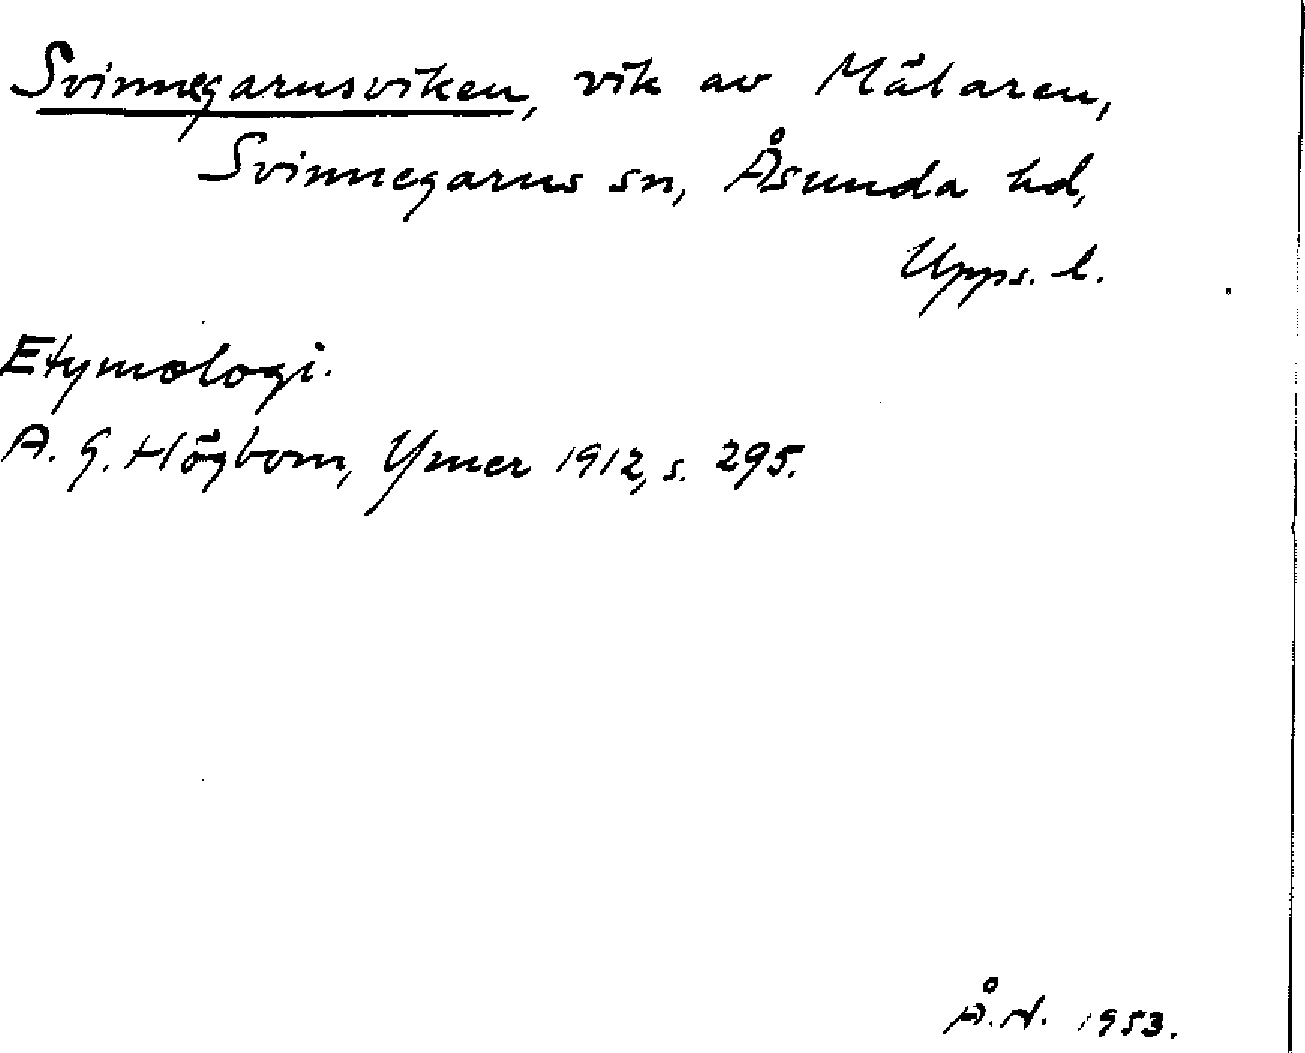 Svinnegarnsviken, vik av Mälaren,
Svinnegarns sn, Åsunda hd,
Upps. l.
Etymologi.
A. G. Högbom, Ymer 1912, s. 295.
Å.N. 1953.